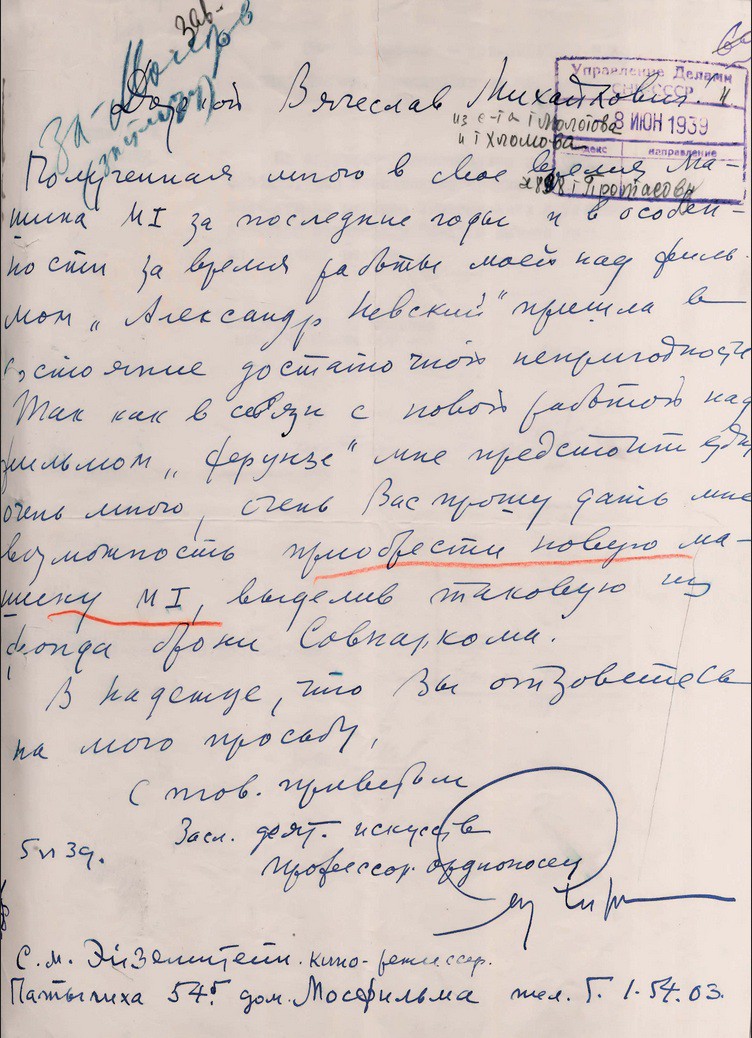 зав-
За - Молотов
Управление Делами
СНК СССР
Дорогой Вячеслав Михайлович!
из с-та т Молотова
8 ИЮН 1939
и т Хломова
направление
Полученная мною в свое время ма-
т Протасову
шина М I за последние годы и в особен-
ности за время работы моей над филь-
мом „Александр Невский" пришла в
состояние достаточной непригодности
Так как в связи с новой работой над
фильмом „Ферунзе" мне предстоит
очень много, очень Вас прошу дать мне
возможность приобрести новую ма-
шину М I, выделив таковую из
фонда брони Совнаркома.
В надежде, что Вы отзоветесь
на мою просьбу,
С тов. приветом
Засл. деят. искусств
5 VI 39.
профессор орденоносец
С. М. Эйзенштейн. кино-режиссер.
Патылиха 54б дом. Мосфильма тел. Г. 1.54.03.